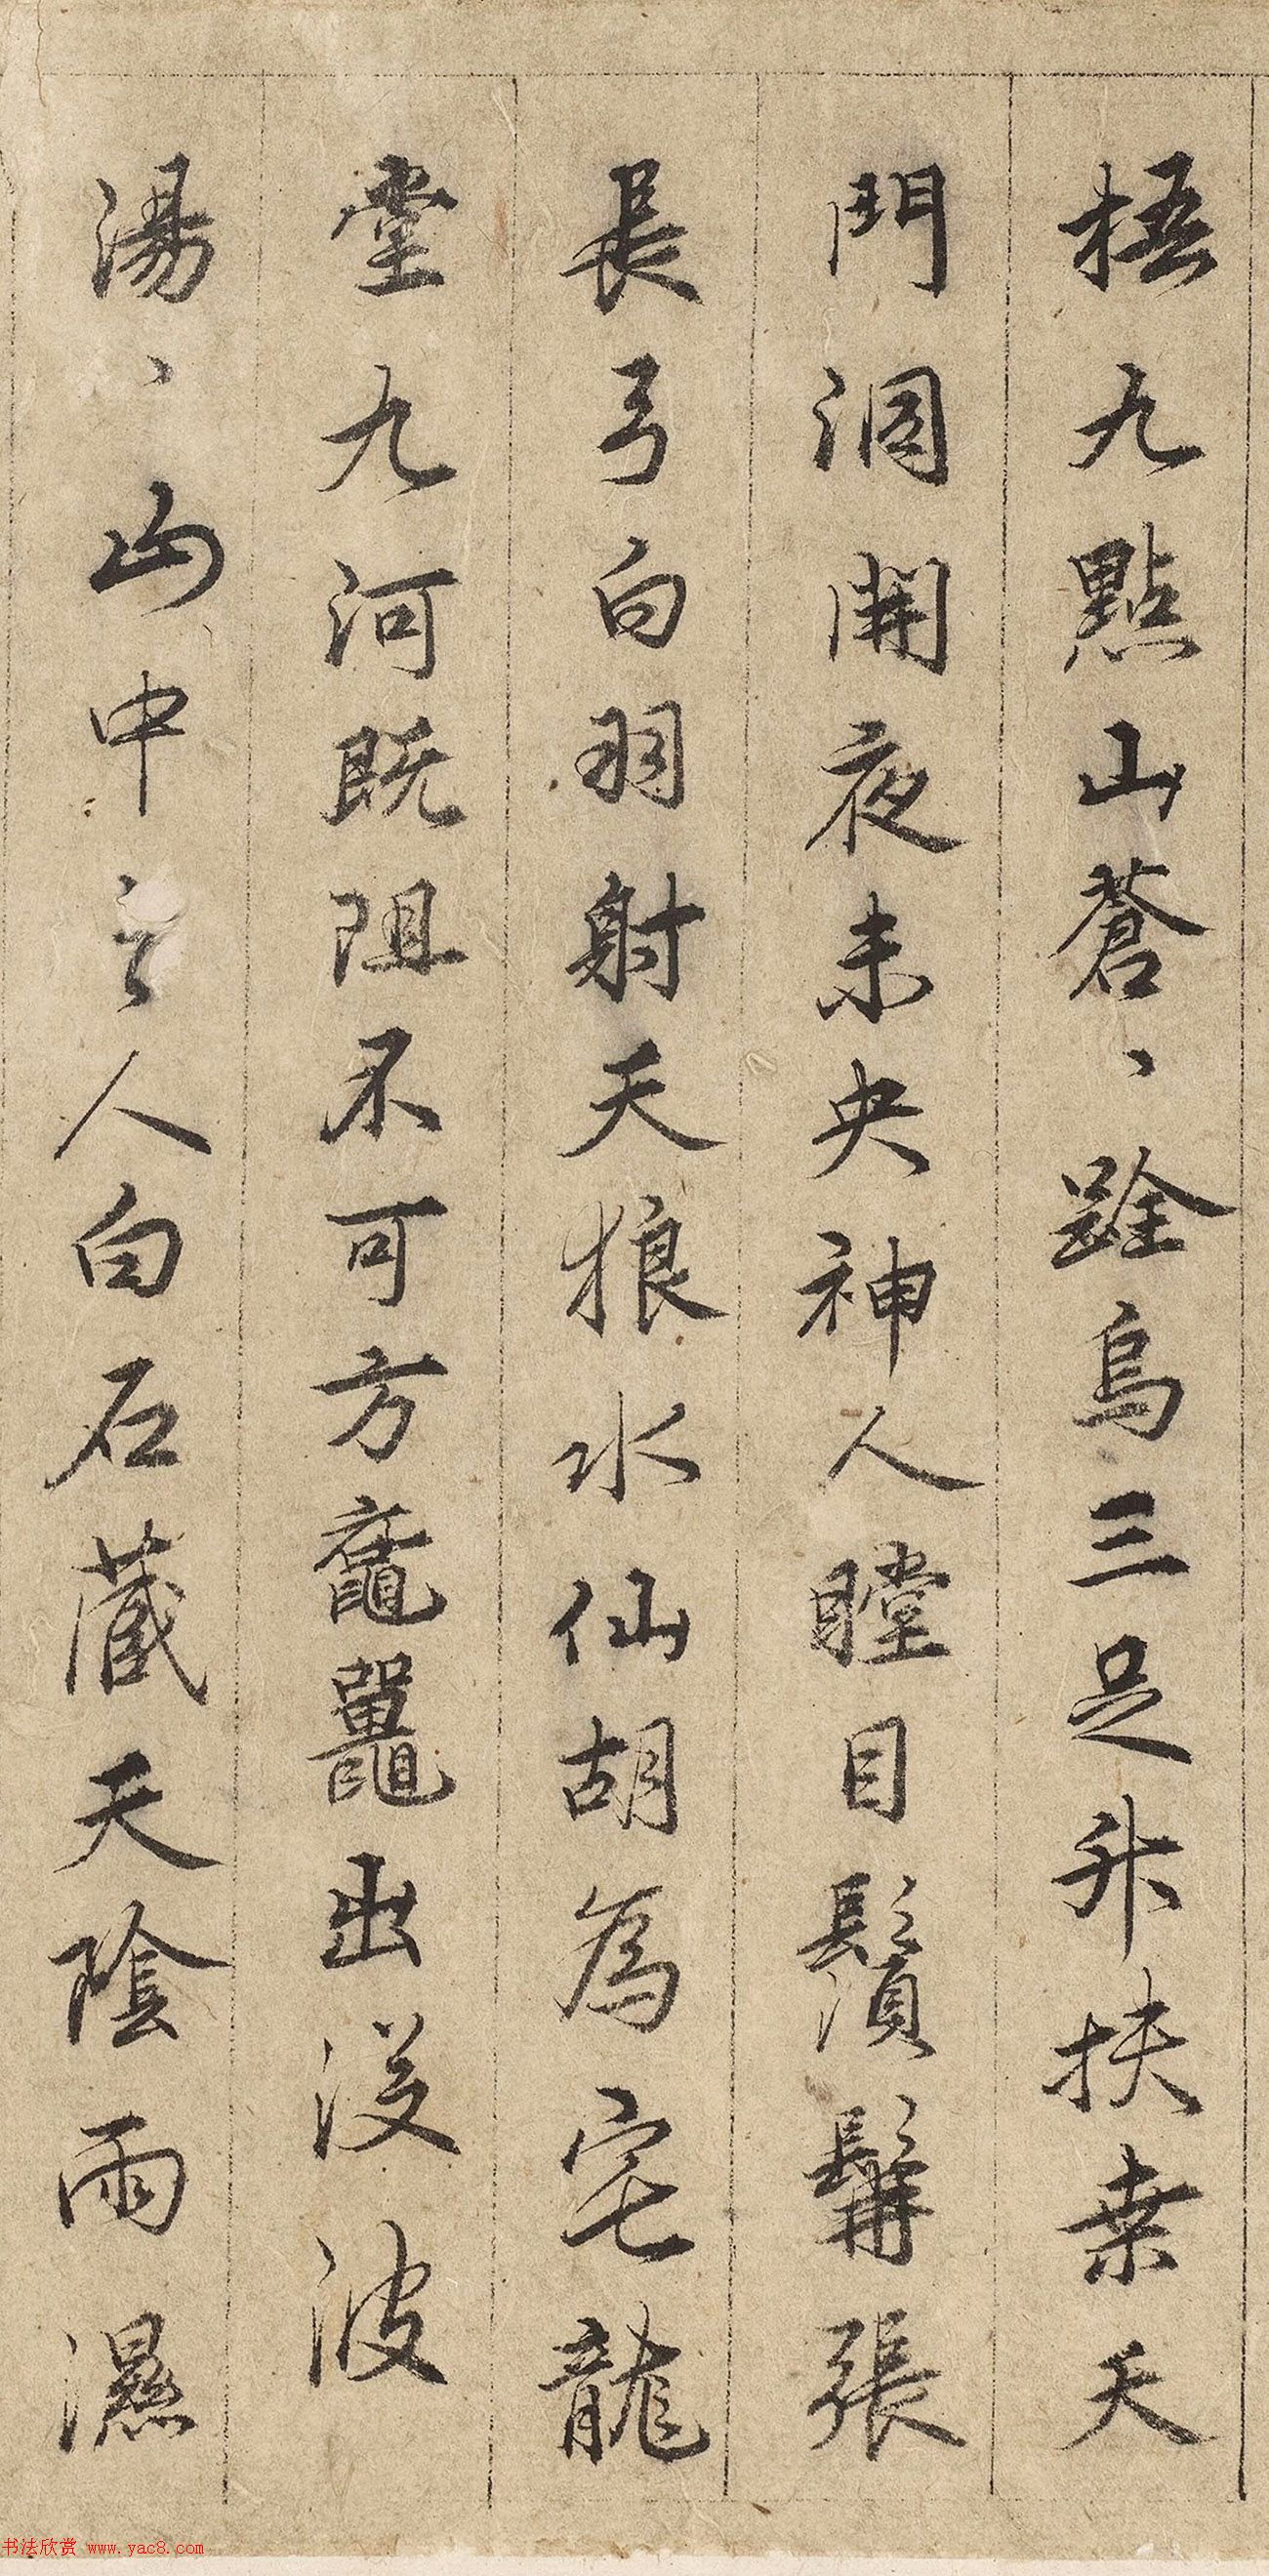 梧九點山蒼、跧烏三足升扶桒天
門洞開夜未央神人瞠目鬚髯張
長弓白羽射天狼水仙胡為宅龍
堂九河既阻不可方鼀鼉出没波
湯、山中之人白石藏天陰雨濕
书法欣赏 www.yac8.com